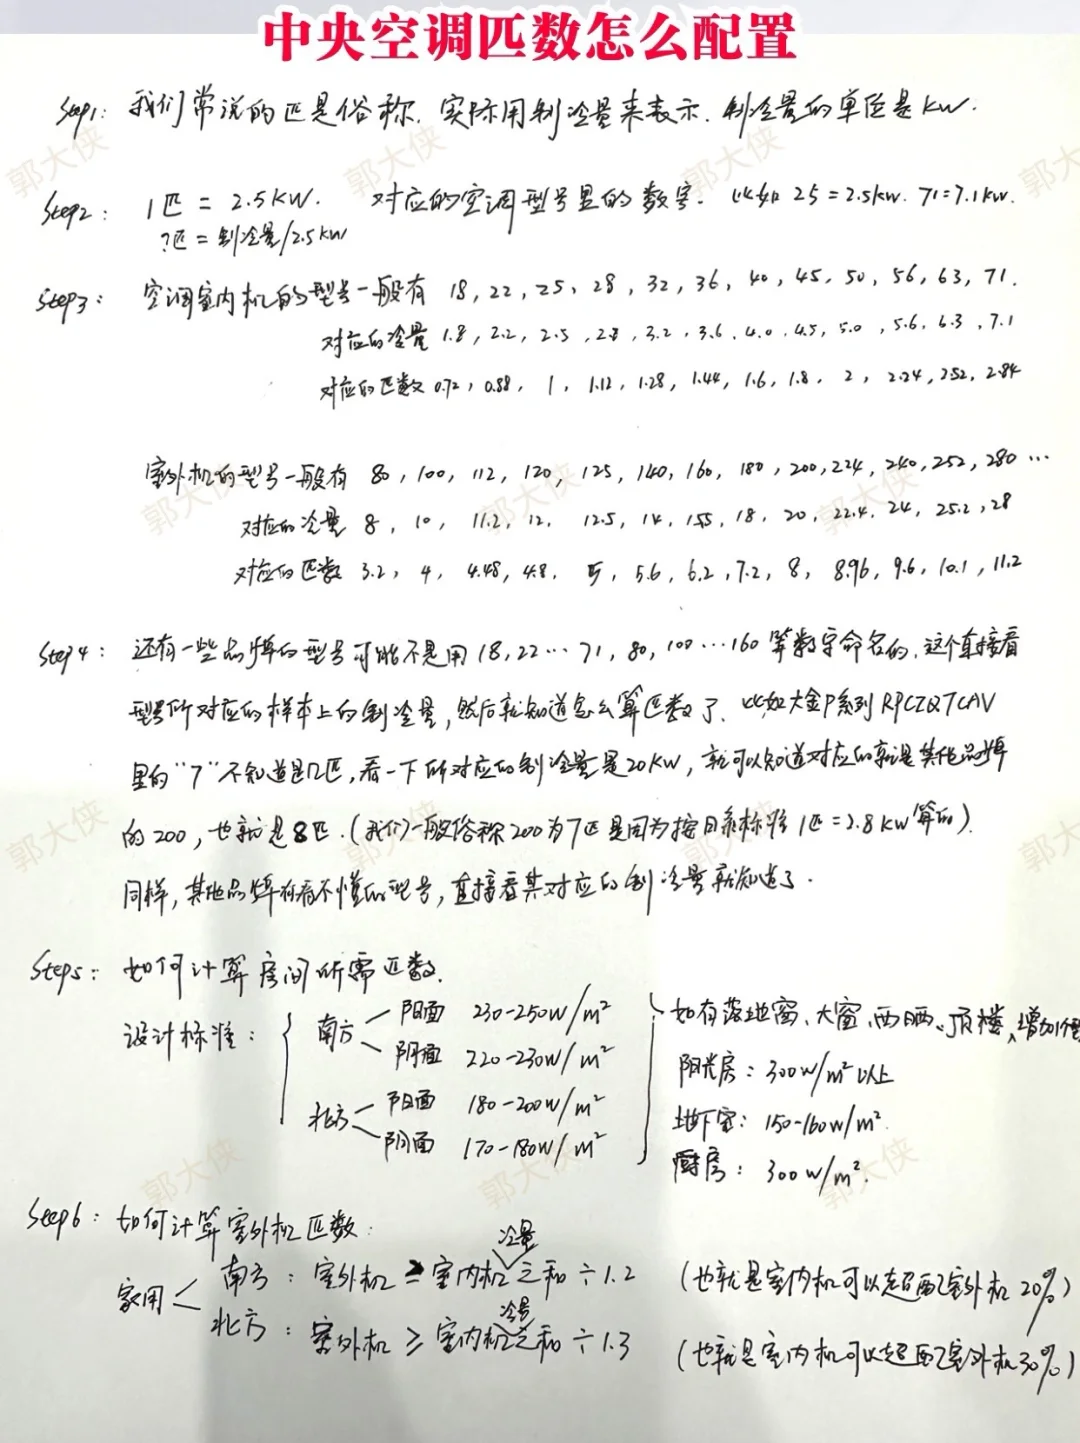 中央空调匹数怎么配置
Step1: 我们常说的匹是俗称. 实际用制冷量来表示. 制冷量的单位是KW.
Step2: 1匹 = 2.5KW. 对应的空调型号里的数字. 比如 25=2.5kw. 71=7.1kw.
?匹 = 制冷量/2.5KW
Step3: 空调室内机的型号一般有 18, 22, 25, 28, 32, 36, 40, 45, 50, 56, 63, 71.
对应的冷量 1.8, 2.2, 2.5, 2.8, 3.2, 3.6, 4.0, 4.5, 5.0, 5.6, 6.3, 7.1
对应的匹数 0.72, 0.88, 1, 1.12, 1.28, 1.44, 1.6, 1.8, 2, 2.24, 2.52, 2.84
室外机的型号一般有 80, 100, 112, 120, 125, 140, 160, 180, 200, 224, 240, 252, 280 …
对应的冷量 8, 10, 11.2, 12, 12.5, 14, 15.5, 18, 20, 22.4, 24, 25.2, 28
对应的匹数 3.2, 4, 4.48, 4.8, 5, 5.6, 6.2, 7.2, 8, 8.96, 9.6, 10.1, 11.2
Step4: 还有一些品牌的型号可能不是用18,22…71,80,100…160等数字命名的,这个直接看
型号所对应的样本上的制冷量,然后就知道怎么算匹数了. 比如大金P系列RPCZQ7CAV
里的“7”不知道是几匹,看一下所对应的制冷量是20KW,就可以知道对应的就是其他品牌
的200, 也就是8匹.(我们一般俗称200为7匹是因为按日系标准1匹=2.8KW算的).
同样,其他品牌有看不懂的型号,直接看其对应的制冷量就知道了.
Step5: 如何计算房间所需匹数.
设计标准:
南方 阳面 230-250W/m²
阴面 220-230W/m²
北方 阳面 180-200W/m²
阴面 170-180W/m²
如有落地窗、大窗、西晒、顶楼,增加
阳光房: 300W/m²以上
地下室: 150-160W/m².
厨房: 300W/m².
Step6: 如何计算室外机匹数:
家用
南方: 室外机 ≥ 室内机冷量之和÷1.2 (也就是室内机可以超配室外机20%)
北方: 室外机 ≥ 室内机冷量之和÷1.3 (也就是室内机可以超配室外机30%)
郭大侠
郭大侠
郭大侠
郭大侠
郭大侠
郭大侠
郭大侠
郭大侠
郭大侠
郭大侠
郭大侠
郭大侠
郭大侠
郭大侠